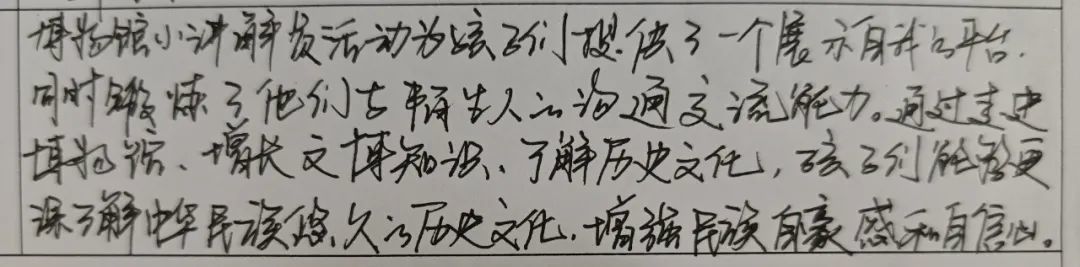 博物馆小讲解员活动为孩子们提供了一个展示自我的平台.
同时锻炼了他们与陌生人的沟通交流能力。通过走进
博物馆、增长文博知识、了解历史文化，孩子们能够更
深了解中华民族悠久的历史文化.增强民族自豪感和自信心。